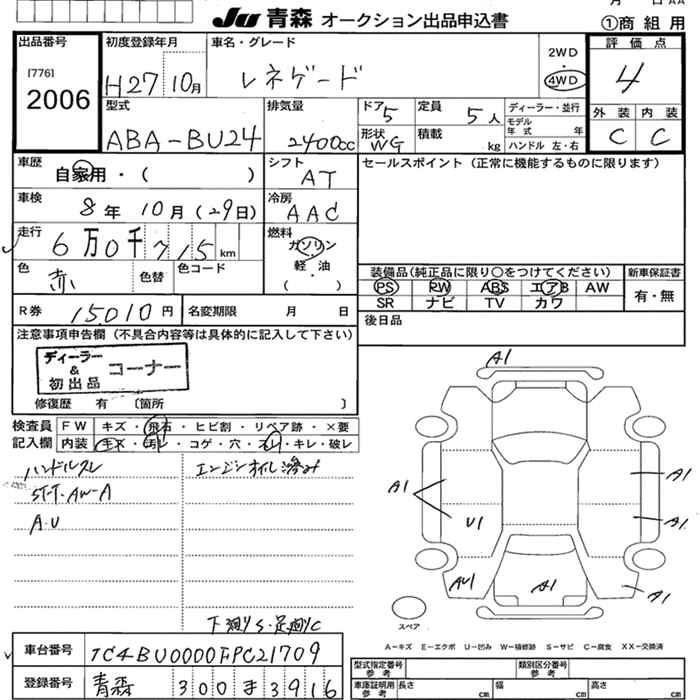 JU 青森 オークション出品申込書
①商組用
出品番号 初度登録年月 車名・グレード 評価点
[776]
2006
H27 10月 レネゲード 2WD 4WD 4
型式 排気量 ドア 5 定員 5人 ディーラー・並行 外装 内装
ABA-BU24 2400cc 形状 WG 積載 kg モデル年式 年 ハンドル 左・右 C C
車歴 自家用・( ) シフト AT セールスポイント (正常に機能するものに限ります)
車検 8年 10月 (29日) 冷房 AAC
走行 6万0千715km 燃料 ガソリン・軽油 ( )
色 赤 色替 色コード
装備品(純正品に限り○をつけてください) 新車保証書
PS PW ABS エアB AW 有・無
SR ナビ TV カワ
R券 15010円 名変期限 月 日 後日品
注意事項申告欄 (不具合内容等は具体的に記入して下さい)
ディーラー & 初出品 コーナー
修復歴 有 〔箇所 〕
検査員記入欄 FW キズ・飛石・ヒビ割・リペア跡・×要
内装 キズ・汚れ・コゲ・穴・スレ・キレ・破レ
ハンドルスレ エンジンオイル滲み
ST-T・AW-A
A・U
下廻りS・足廻りC
A1
A1
A1
A1
U1
AU1
A1
A1
スペア
A-キズ E-エクボ U-凹み W-補修跡 S-サビ C-腐食 XX-交換済
車台番号 1C4BU0000FPC21709
登録番号 青森 300 ま 3916
型式指定番号 参考 類別区分番号 参考
車庫証明用 参考 長さ cm 幅 cm 高さ cm